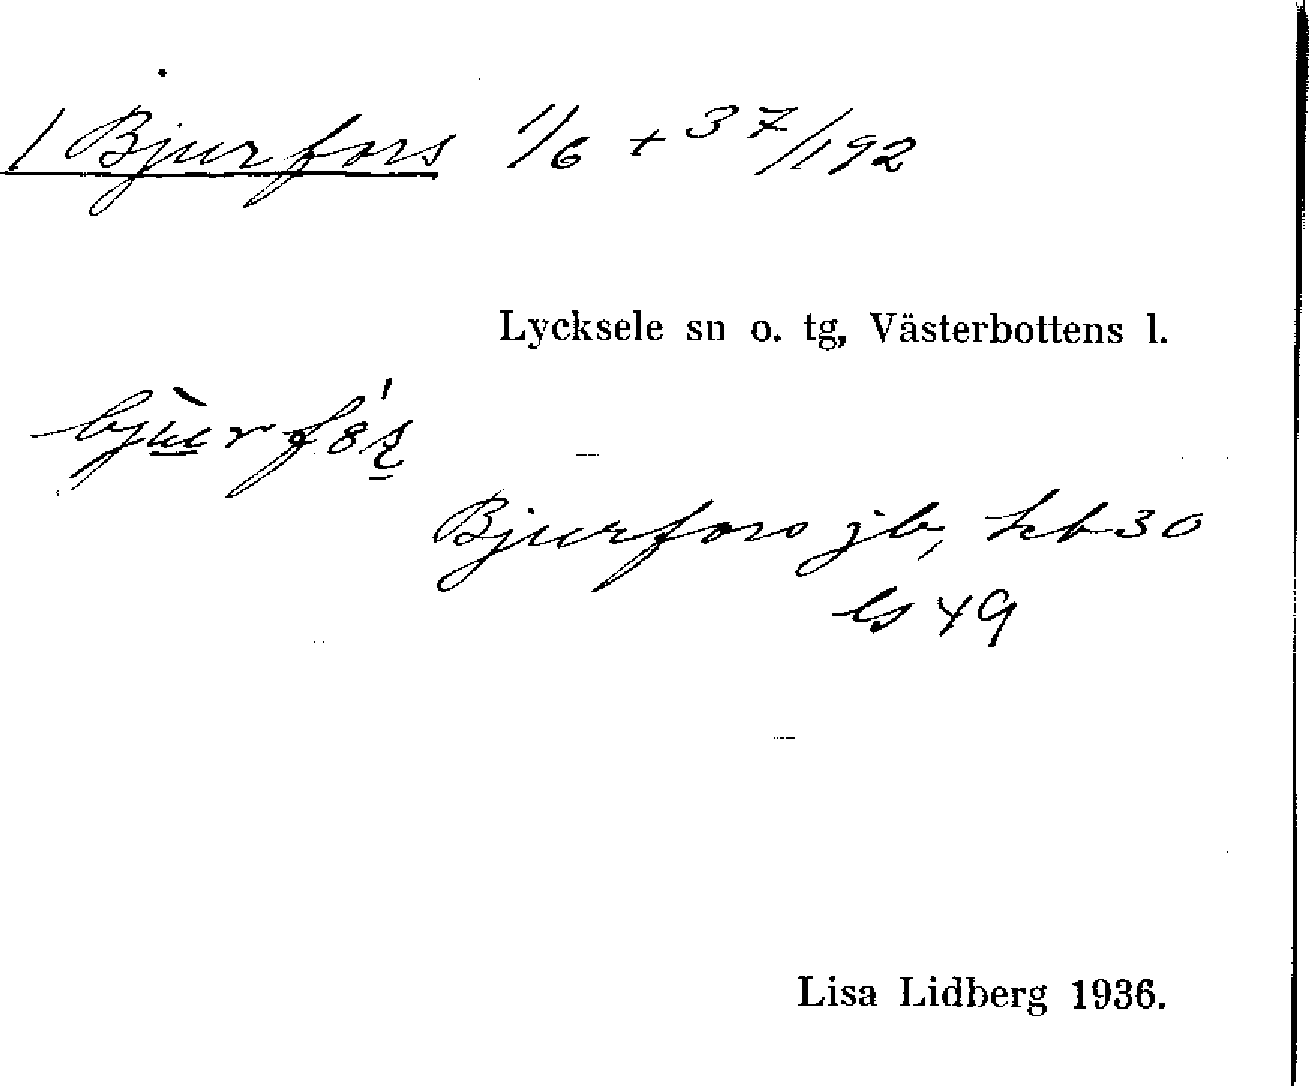 1 Bjurfors 1/6 + 37/192
Lycksele sn o. tg, Västerbottens l.
Bjurfors jb, hb 30
ls 49
Lisa Lidberg 1936.